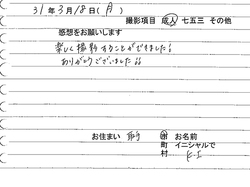 31年3月18日(月)
撮影項目 成人 七五三 その他
感想をお願いします
楽しく撮影することができました!!
ありがとうございました!!
お住まい 市 お名前
町 イニシャルで
村 K.I